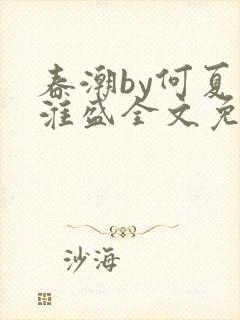 春潮by何夏
淮盛全文免
沙海